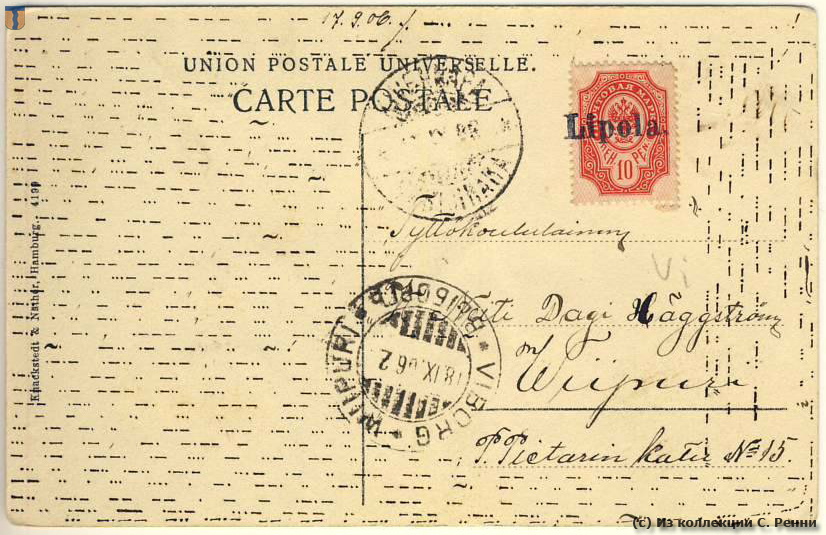 17.9.06.
UNION POSTALE UNIVERSELLE.
CARTE POSTALE
ПОЧТОВАЯ МАРКА
Lipola.
10
PEN.
Tyttökoululainen
Neiti Dagi Häggström
Wiipuri
P. Pietarin katu № 15.
WIIPURI * ВЫБОРГЪ * VIBORG *
18.IX.06.2
Knackstedt & Näther, Hamburg. 4199
(c) Из коллекций С. Ренни